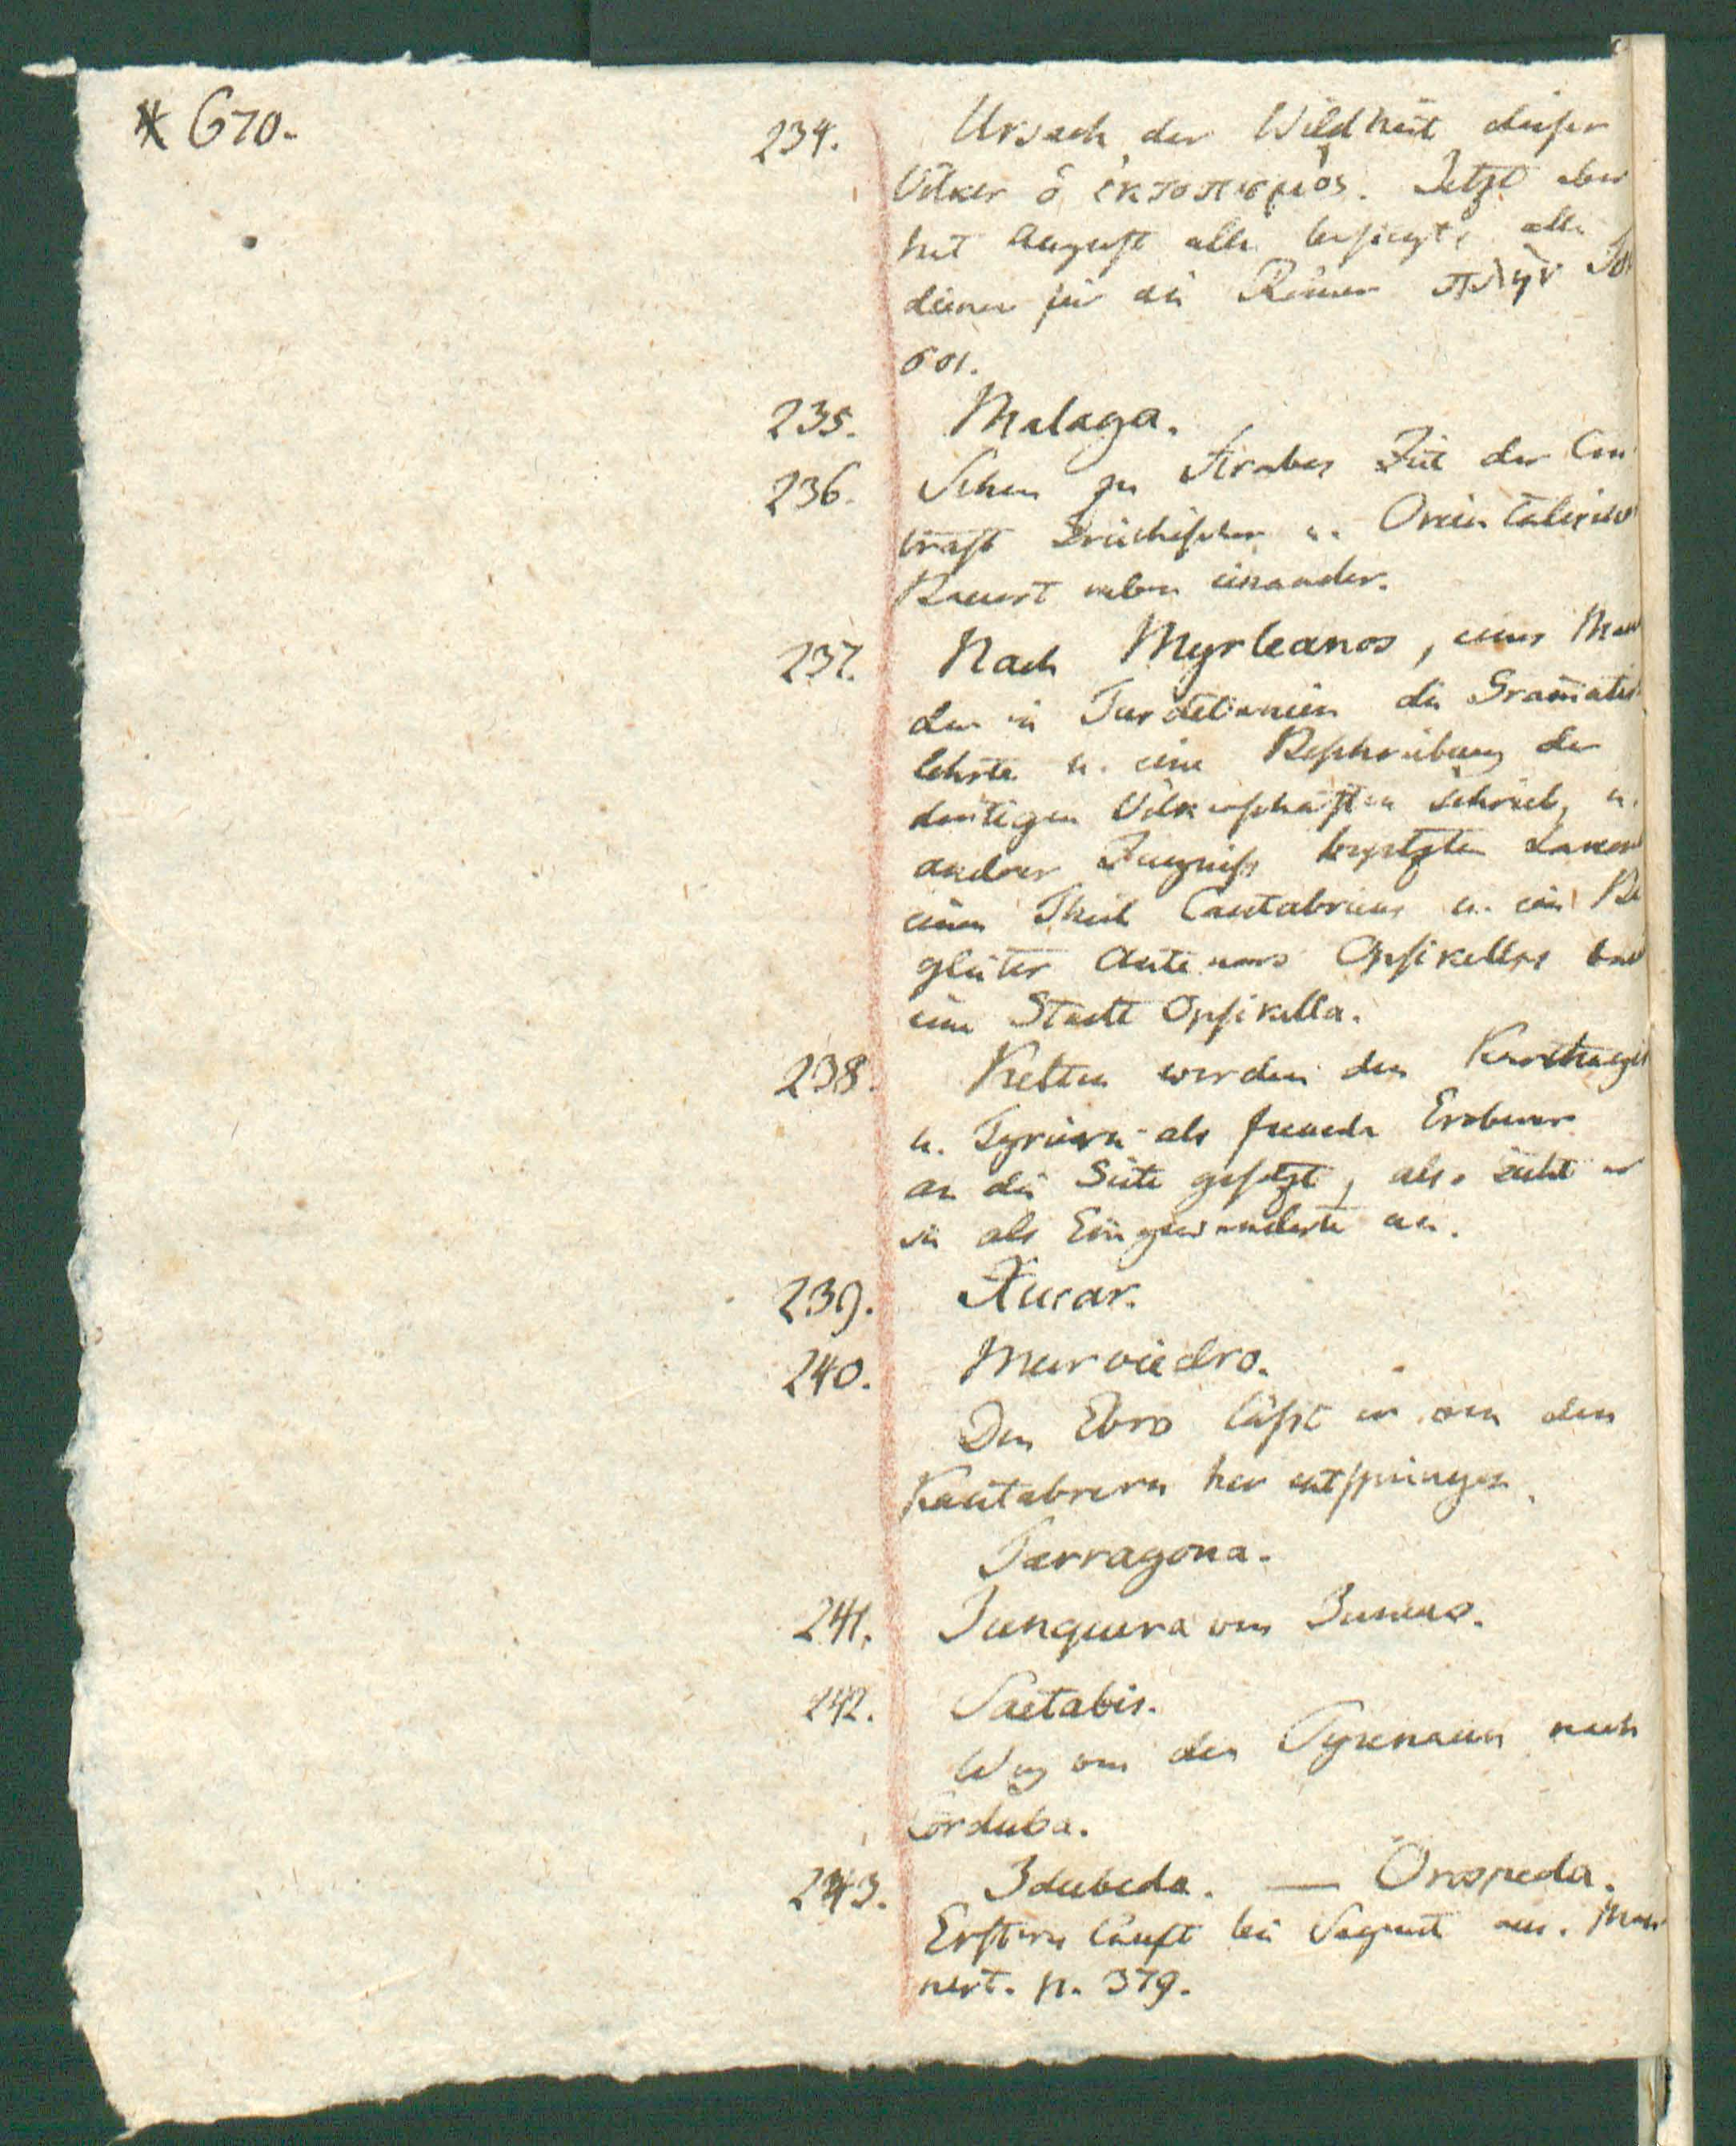 * 670.
234. Ursach der Wildheit dieser
Völker ὁ ἐκτοπισμὸς. Jetzt aber
hat August alle besiegt, alle
dienen für die Römer πλὴν
σοι.
235. Malaga.
236. Schon zu Strabos Zeit der Con
trast Griechischer u. Orientalischer
Bauart neben einander.
237. Nach Myrleanos, eines Man
der in Turdetanien die Gram̄atik
lehrte u. eine Beschreibung der
dortigen Völkerschaften schrieb, u.
andrer Zeugniss besetzten Lakon
einen Theil Cantabriens u. ein Be
gleiter Antenors Opsikellas baut
eine Stadt Opsikella.
238. Kelten werden den Karthagern
u. Tyriern als fremde Eroberer
an die Seite gesetzt, also sieht er
sie als Eingewanderte an.
239. Xucar.
240. Murviedro.
Den Ebro lässt er von den
Kantabrern her entspringen.
Tarragona.
241. Junquera von Juncus.
242. Saetabis.
Weg von den Pyrenaeen nach
Corduba.
243. Idubeda. — Orospeda.
Erstres läuft bei Sagunt aus. Man
nert. p. 379.